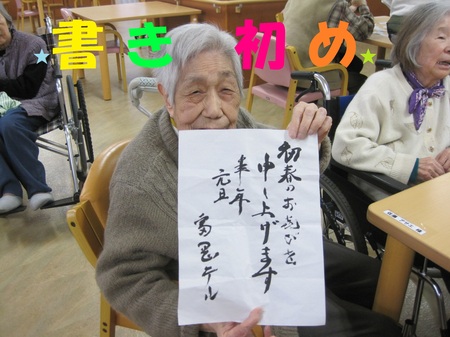 ★書き初め★
初春のお喜びを
申し上げます
年
元旦
富岡テル